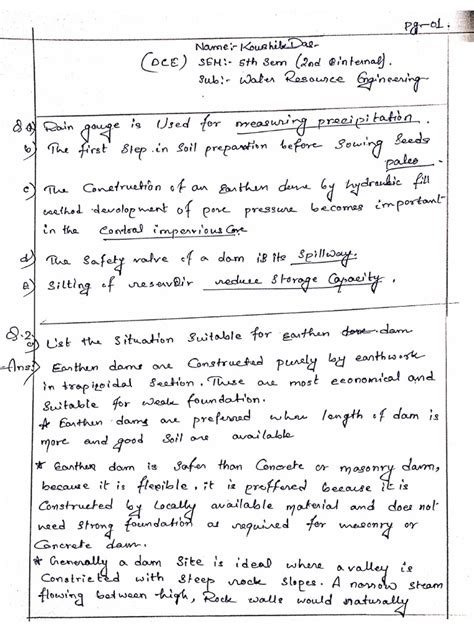 Pg-01.
Name:- Koushik Das
(DCE) SEM:- 5th Sem (2nd @internal).
Sub:- Water Resource Engineering
Q.a) Rain gauge is Used for measuring precipitation.
b) The first Step in Soil preparation before Sowing Seeds
paleo
c) The Construction of an Earthen dam by hydraulic fill
method development of pore pressure becomes important
in the Control impervious Core
d) The Safety valve of a dam is its Spillway.
e) Silting of reservoir reduce Storage Capacity.
Q.2
a) List the Situation Suitable for Earthen dam
Ans:) Earthen dams are Constructed purely by earthwork
in trapizoidal Section. These are most economical and
Suitable for weak foundation.
* Earthen dams are preferred when length of dam is
more and good Soil are available
* Earthen dam is Safer than Concrete or masonry dam,
because it is flexible, it is preffered because it is
Constructed by Locally available material and does not
need Strong foundation as required for masonry or
Concrete dam.
* Generally a dam Site is ideal where a valley is
Constricted with Steep rock Slopes. A narrow steam
flowing between high, Rock walls would naturally